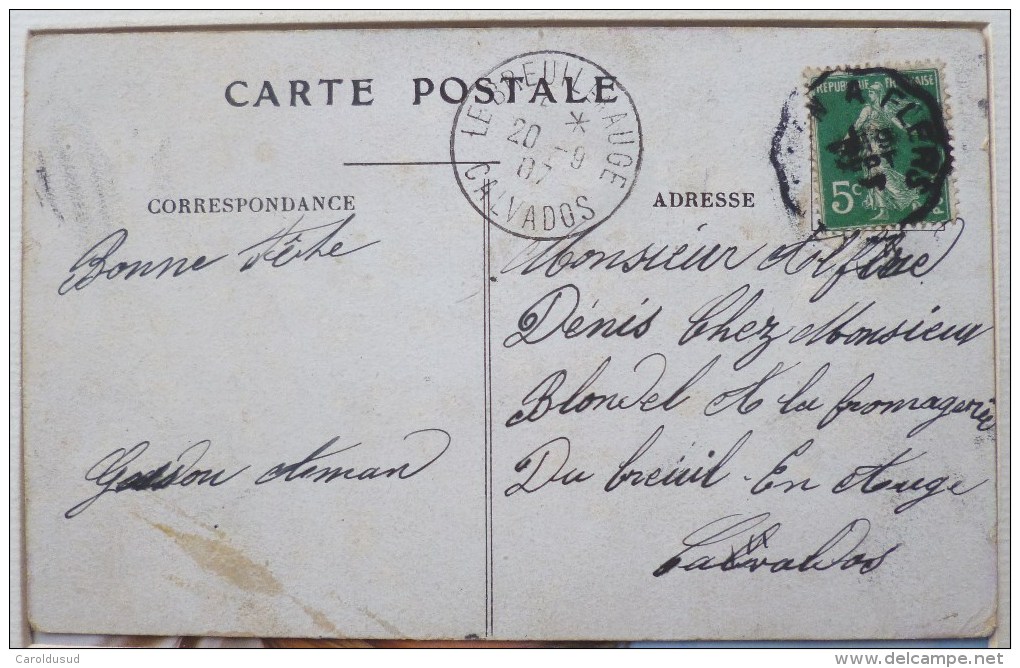 CARTE POSTALE
LE BREUIL-EN-AUGE
20 - 9
07
CALVADOS
RÉPUBLIQUE FRANÇAISE
5c
N A FLERS
19
SEPT
CORRESPONDANCE
ADRESSE
Bonne Fête
Monsieur
Dénis Chez Monsieur
Blondel A la fromagerie
Du breuil En Auge
Calvados
delcampe.net
Caroldusud